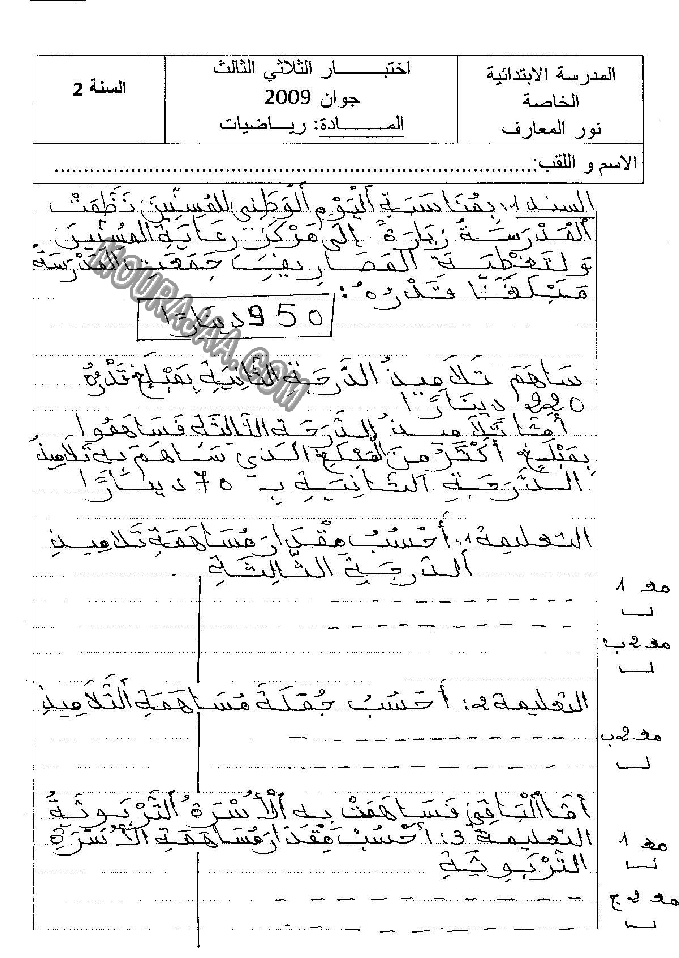 المدرسة الابتدائية
الخاصة
نور المعارف
اختبـــــــار الثلاثي الثالث
جوان 2009
المــــادة: رياضيات
السنة 2
الاسم و اللقب:
السند 1: بِمُنَاسَبَةِ الْيَوْمِ الْوَطَنِي لِلْمُسِنِّينَ نَظَّمَتْ
الْمَدْرَسَةُ زِيَارَةً إِلَى مَرْكَزِ رِعَايَةِ الْمُسِنِّينَ
وَلِتَغْطِيَةِ الْمَصَارِيفِ جَمَعَتِ الْمَدْرَسَةُ
مَبْلَغًا قَدْرُهُ:
950 دينارًا
MOURAJAA.COM
سَاهَمَ تَلَامِيذُ الدَّرَجَةِ الثَّانِيَةِ بِمَبْلَغٍ قَدْرُهُ
220 دِينَارًا
أَمَّا تَلَامِيذُ الدَّرَجَةِ الثَّالِثَةِ فَسَاهَمُوا
بِمَبْلَغٍ أَكْثَرَ مِنَ الْمَبْلَغِ الَّذِي سَاهَمَ بِهِ تَلَامِيذُ
الدَّرَجَةِ الثَّانِيَةِ بِـ 70 دِينَارًا
التعليمة 1: أَحْسُبُ مِقْدَارَ مُسَاهَمَةِ تَلَامِيذِ
الدَّرَجَةِ الثَّالِثَةِ.
مع 1
مع 2ب
التعليمة 2: أَحْسُبُ جُمْلَةَ مُسَاهَمَةِ التَّلَامِيذِ
مع 2ب
أَمَّا الْبَاقِي فَسَاهَمَتْ بِهِ الْأُسْرَةُ التَّرْبَوِيَّةُ
التعليمة 3: أَحْسُبُ مِقْدَارَ مُسَاهَمَةِ الْأُسْرَةِ
التَّرْبَوِيَّةِ
مع 1
مع 2ج